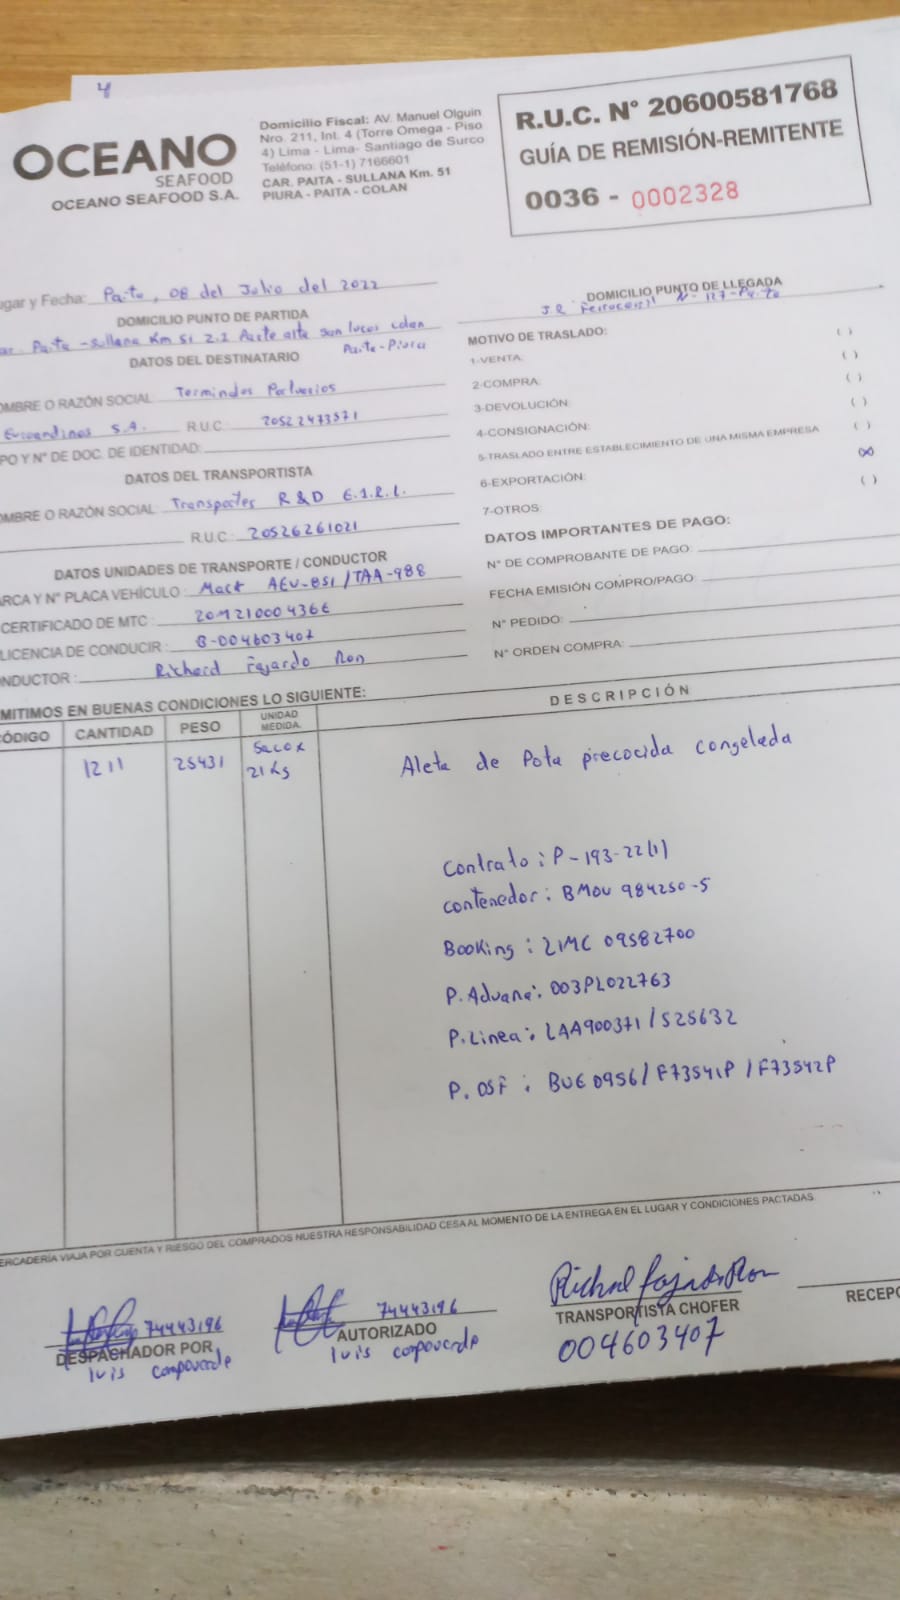 4
OCEANO
SEAFOOD
OCEANO SEAFOOD S.A.
Domicilio Fiscal: AV. Manuel Olguin
Nro. 211, Int. 4 (Torre Omega - Piso
4) Lima - Lima- Santiago de Surco
Teléfono: (51-1) 7166601
CAR. PAITA - SULLANA Km. 51
PIURA - PAITA - COLAN
R.U.C. N° 20600581768
GUÍA DE REMISIÓN-REMITENTE
0036 - 0002328
ugar y Fecha: Paita, 08 del Julio del 2022
DOMICILIO PUNTO DE PARTIDA
Paita - Sullana Km 51 2.2 Parte alta San lucas colan
Paita-Piura
DOMICILIO PUNTO DE LLEGADA
J.R N-127-Paita
DATOS DEL DESTINATARIO
OMBRE O RAZÓN SOCIAL Termindos Portuarios
Euroandinos S.A. R.U.C: 20522473571
PO Y N° DE DOC. DE IDENTIDAD:
DATOS DEL TRANSPORTISTA
OMBRE O RAZÓN SOCIAL Transportes R & D E.I.R.L.
R.U.C: 20526261021
DATOS UNIDADES DE TRANSPORTE / CONDUCTOR
ARCA Y N° PLACA VEHÍCULO : Mack AEV-851/TAA-988
CERTIFICADO DE MTC : 20M21000436E
LICENCIA DE CONDUCIR : B-004603407
ONDUCTOR : Richard Fajardo Ron
MOTIVO DE TRASLADO: ( )
1-VENTA: ( )
2-COMPRA: ( )
3-DEVOLUCIÓN: ( )
4-CONSIGNACIÓN: ( )
5-TRASLADO ENTRE ESTABLECIMIENTO DE UNA MISMA EMPRESA
6-EXPORTACIÓN: (X)
7-OTROS: ( )
DATOS IMPORTANTES DE PAGO:
N° DE COMPROBANTE DE PAGO:
FECHA EMISIÓN COMPRO/PAGO:
N° PEDIDO:
N° ORDEN COMPRA:
MITIMOS EN BUENAS CONDICIONES LO SIGUIENTE:
ÓDIGO CANTIDAD PESO UNIDAD MEDIDA. DESCRIPCIÓN
1211 25431 Saco x 21 Kg Aleta de Pota precocida congelada
Contrato : P-193-22(1)
contenedor : BMOU 984250-5
Booking : LIMC 09582700
P.Aduana : 003PL022763
P.Linea : LAA900371/525632
P. OSF : BUE0956/F73541P/F73542P
ERCADERÍA VIAJA POR CUENTA Y RIESGO DEL COMPRADOS NUESTRA RESPONSABILIDAD CESA AL MOMENTO DE LA ENTREGA EN EL LUGAR Y CONDICIONES PACTADAS.
74443196
DESPACHADOR POR
luis campoverde
74443196
AUTORIZADO
luis campoverde
Richard Fajardo Ron
TRANSPORTISTA CHOFER
004603407
RECEPC